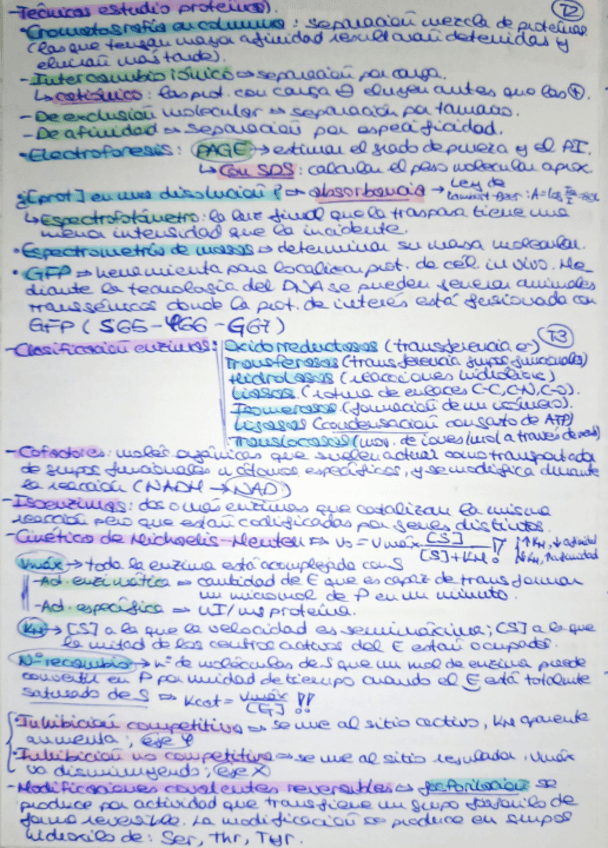 -Técnicas estudio proteínas. T2
•Cromatografía en columna: separación mezcla de proteínas
(las que tengan mayor afinidad resultarán detenidas y
eluirán más tarde).
-Intercambio iónico ⇒ separación por carga.
↳ catiónico: las prot. con carga ⊖ eluyen antes que las ⊕.
-De exclusión molecular ⇒ separación por tamaño.
-De afinidad ⇒ separación por especificidad.
•Electroforesis: PAGE → estimar el grado de pureza y el PI.
↳ Con SDS: calcular el peso molecular aprox.
¿[prot] en una disolución? ⇒ absorbancia → Ley de
Lambert-Beer: A=log
↳ Espectrofotómetro: la luz final que la traspasa tiene una
menor intensidad que la incidente.
•Espectrometría de masas ⇒ determinar su masa molecular.
•GFP ⇒ herramienta para localizar prot. de cél. in vivo. Me-
diante la tecnología del DNA se pueden generar animales
transgénicos donde la prot. de interés está fusionada con
GFP (S65-Y66-G67)
T3
-Clasificación enzimas: Oxidorreductasas (transferencia e-)
Transferasas (transferencia grupos funcionales)
Hidrolasas (reacciones hidrólisis)
Liasas (rotura de enlaces C-C, C-N, C-O).
Isomerasas (formación de un isómero).
Ligasas (condensación con gasto de ATP)
Translocasas (mov. de iones/mol a través de)
-Cofactores: moléc orgánicas que suelen actuar como transportador
de grupos funcionales o átomos específicos, y se modifica durante
la reacción (NADH → NAD)
-Isoenzimas: dos o más enzimas que catalizan la misma
reacción pero que están codificadas por genes distintos.
-Cinética de Michaelis-Menten ⇒ V₀ = Vmáx [S]
[S]+KM ↑KM, ↓ afinidad
↓KM, ↑ afinidad
Vmáx → toda la enzima está acomplejada con S
-Ad. enzimática ⇒ cantidad de E que es capaz de transformar
un micromol de P en un minuto.
-Ad. específica ⇒ UI/mg proteína.
KM → [S] a la que la velocidad es semimáxima; [S] a la que
la mitad de los centros activos del E están ocupados.
Nº recambio → nº de moléculas de S que un mol de enzima puede
convertir en P por unidad de tiempo cuando el E está totalmente
saturado de S ⇒ Kcat = Vmáx
[E]T !!
•Inhibición competitiva ⇒ se une al sitio activo, KM aparente
aumenta; eje Y
•Inhibición no competitiva ⇒ se une al sitio regulador. Vmáx
va disminuyendo; eje X
-Modificaciones covalentes reversibles ⇒ fosforilación se
produce por actividad que transfiere un grupo fosforilo de
forma reversible. La modificación se produce en grupos
hidroxilo de: Ser, Thr, Tyr.